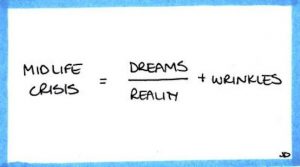 MIDLIFE
CRISIS
=
DREAMS
REALITY
+ WRINKLES
JD